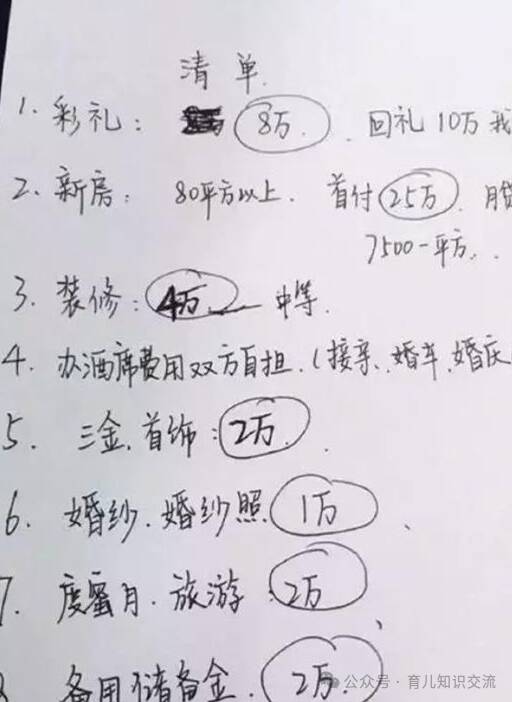 清单
1. 彩礼: 8万. 回礼10万我
2. 新房: 80平方以上. 首付25万. 月
7500一平方..
3. 装修: 4万 中等.
4. 办酒席费用双方自担.(接亲、婚车、婚庆
5. 三金.首饰: 2万.
6. 婚纱.婚纱照 1万、
7. 度蜜月.旅游: 2万
备用储备金. 2万.
公众号·育儿知识交流